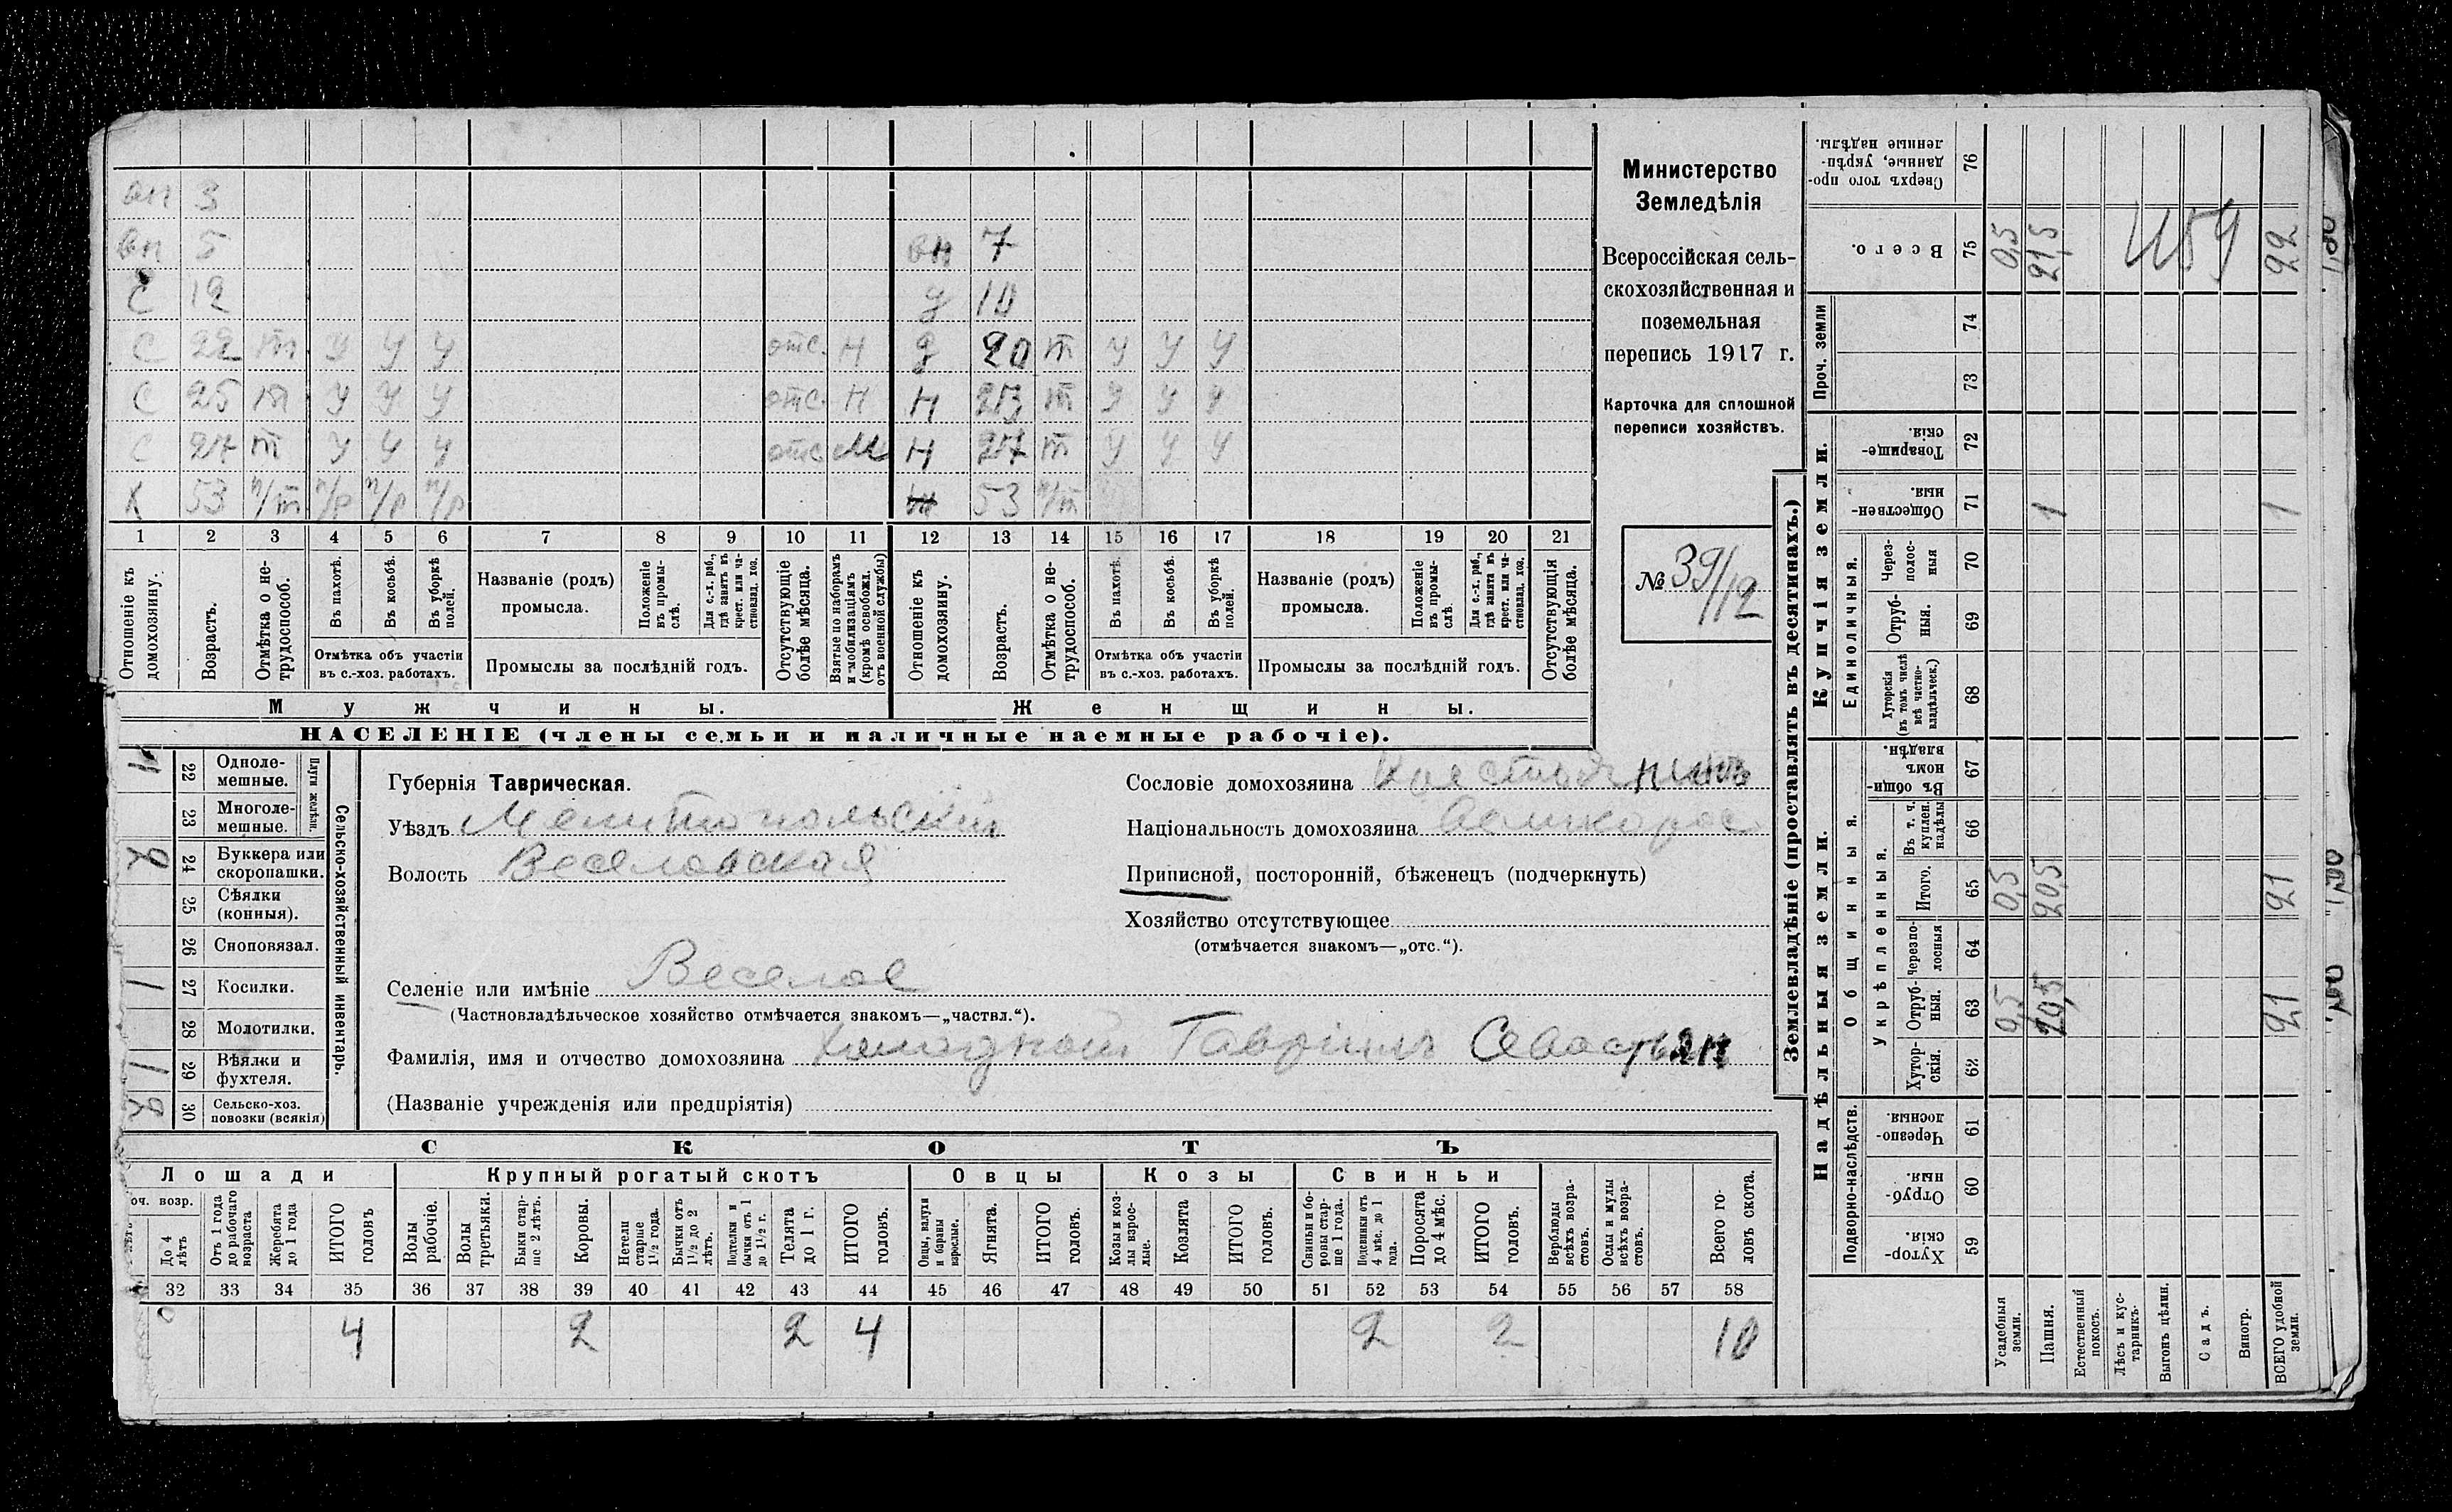 Министерство
Земледѣлія
Всероссійская сель-
скохозяйственная и
поземельная
перепись 1917 г.
Карточка для сплошной
переписи хозяйствъ.
№ 39/12
вн 3
вн 5 вн 7
С 12 д 10
С 22 т у у у отс. Н д 20 т у у у
С 25 т у у у отс. Н Н 23 т у у у
С 27 т у у у отс М Н 27 т у у у
Х 53 п/т п/р п/р п/р 53 п/т
1 2 3 4 5 6 7 8 9 10 11 12 13 14 15 16 17 18 19 20 21
Отношеніе къ домохозяину.
Возрастъ.
Отмѣтка о не-трудоспособ.
Въ пахотѣ.
Въ косьбѣ.
Въ уборкѣ полей.
Отмѣтка объ участіи въ с.-хоз. работахъ.
Названіе (родъ) промысла.
Положеніе въ промы-слѣ.
Для с.-х. раб., гдѣ занятъ въ крест. или ча-стновлад. хоз.
Промыслы за послѣдній годъ.
Отсутствующіе болѣе мѣсяца.
Взятые по наборамъ и мобилизаціямъ (кромѣ освобожд. отъ военной службы)
Отношеніе къ домохозяину.
Возрастъ.
Отмѣтка о не-трудоспособ.
Въ пахотѣ.
Въ косьбѣ.
Въ уборкѣ полей.
Отмѣтка объ участіи въ с.-хоз. работахъ.
Названіе (родъ) промысла.
Положеніе въ промы-слѣ.
Для с.-х. раб., гдѣ занята въ крест. или ча-стновлад. хоз.
Промыслы за послѣдній годъ.
Отсутствующія болѣе мѣсяца.
Мужчины. Женщины.
НАСЕЛЕНІЕ (члены семьи и наличные наемные рабочіе).
Сельско-хозяйственный инвентарь.
Плуги желѣзн.
22 Одноле-мешные.
23 Многоле-мешные.
2 24 Буккера или скоропашки.
25 Сѣялки (конныя).
26 Сноповязал.
1 27 Косилки.
28 Молотилки.
1 29 Вѣялки и фухтеля.
2 30 Сельско-хоз. повозки (всякія)
Губернія Таврическая.
Уѣздъ Мелитопольскій
Волость Веселовская
Сословіе домохозяина Крестьянинъ
Національность домохозяина Великорос
Приписной, посторонній, бѣженецъ (подчеркнуть)
Хозяйство отсутствующее
(отмѣчается знакомъ—„отс.“).
Селеніе или имѣніе Веселое
(Частновладѣльческое хозяйство отмѣчается знакомъ—„частвл.“).
Фамилія, имя и отчество домохозяина Холодной Гавріилъ Севастьян
(Названіе учрежденія или предпріятія)
СКОТЪ
Лошади Крупный рогатый скотъ Овцы Козы Свиньи
оч. возр.
До 4 лѣтъ
Отъ 1 года до рабочаго возраста
Жеребята до 1 года
ИТОГО головъ
Волы рабочіе.
Волы третьяки.
Быки стар-ше 2 лѣтъ.
Коровы.
Нетели старше 1½ года.
Бычки отъ 1½ до 2 лѣтъ.
Подтелки и бычки отъ 1 до 1½ г.
Телята до 1 г.
ИТОГО головъ.
Овцы, валухи и бараны взрослые.
Ягнята.
ИТОГО головъ.
Козы и коз-лы взрос-лые.
Козлята
ИТОГО головъ.
Свиньи и бо-ровы стар-ше 1 года.
Подсвинки отъ 4 мѣс. до 1 года.
Поросята до 4 мѣс.
ИТОГО головъ.
Верблюды всѣхъ возра-стовъ.
Ослы и мулы всѣхъ возра-стовъ.
Всего го-ловъ скота.
32 33 34 35 36 37 38 39 40 41 42 43 44 45 46 47 48 49 50 51 52 53 54 55 56 57 58
4 2 2 4 2 2 10
Землевладѣніе (проставлять въ десятинахъ.)
Надѣльныя земли. Купчія земли.
Подворно-наслѣдств.
Общинныя.
Укрѣпленныя.
Единоличныя.
Проч. земли
59 Хутор-скія.
60 Отруб-ныя.
61 Черезпо-лосныя
62 Хутор-скія.
63 Отруб-ныя. 0,5 20,5 21
64 Черезпо-лосныя
65 Итого. 0,5 20,5 21
66 Въ т. ч. куплен. надѣлы
67 Въ общи-номъ владѣн.
68 Хуторскія (въ томъ числѣ всѣ частно-владѣльческ.)
69 Отруб-ныя.
70 Через-полос-ныя
71 Обществен-ныя. 1 1
72 Товарище-скія.
73
74
75 Всего. 0,5 21,5 22
76 Сверхъ того про-данные, укрѣп-ленные надѣлы.
Усадебныя земли.
Пашня.
Естественный покосъ.
Лѣсъ и кус-тарникъ.
Выгонъ цѣлин.
Садъ.
Виногр.
ВСЕГО удобной земли.